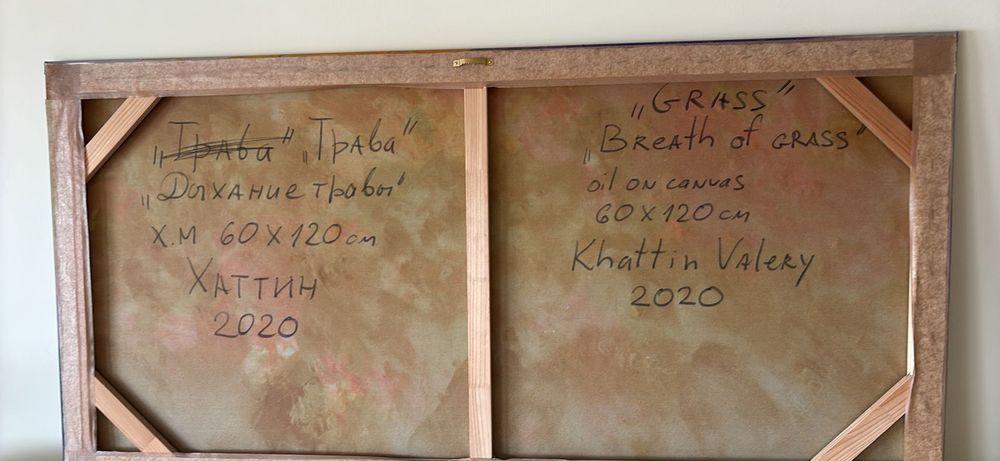 „Трава“ „Трава“
„Дыхание травы“
Х.М 60Х120см
ХАТТИН
2020
„GRASS“
„Breath of GRASS“
oil on canvas
60х120см
Khattin Valery
2020